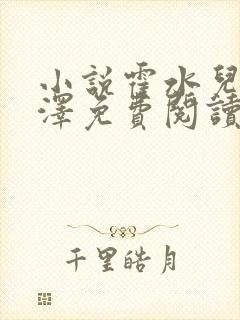 小說霍水兒
澤免費閱讀
千里皓月